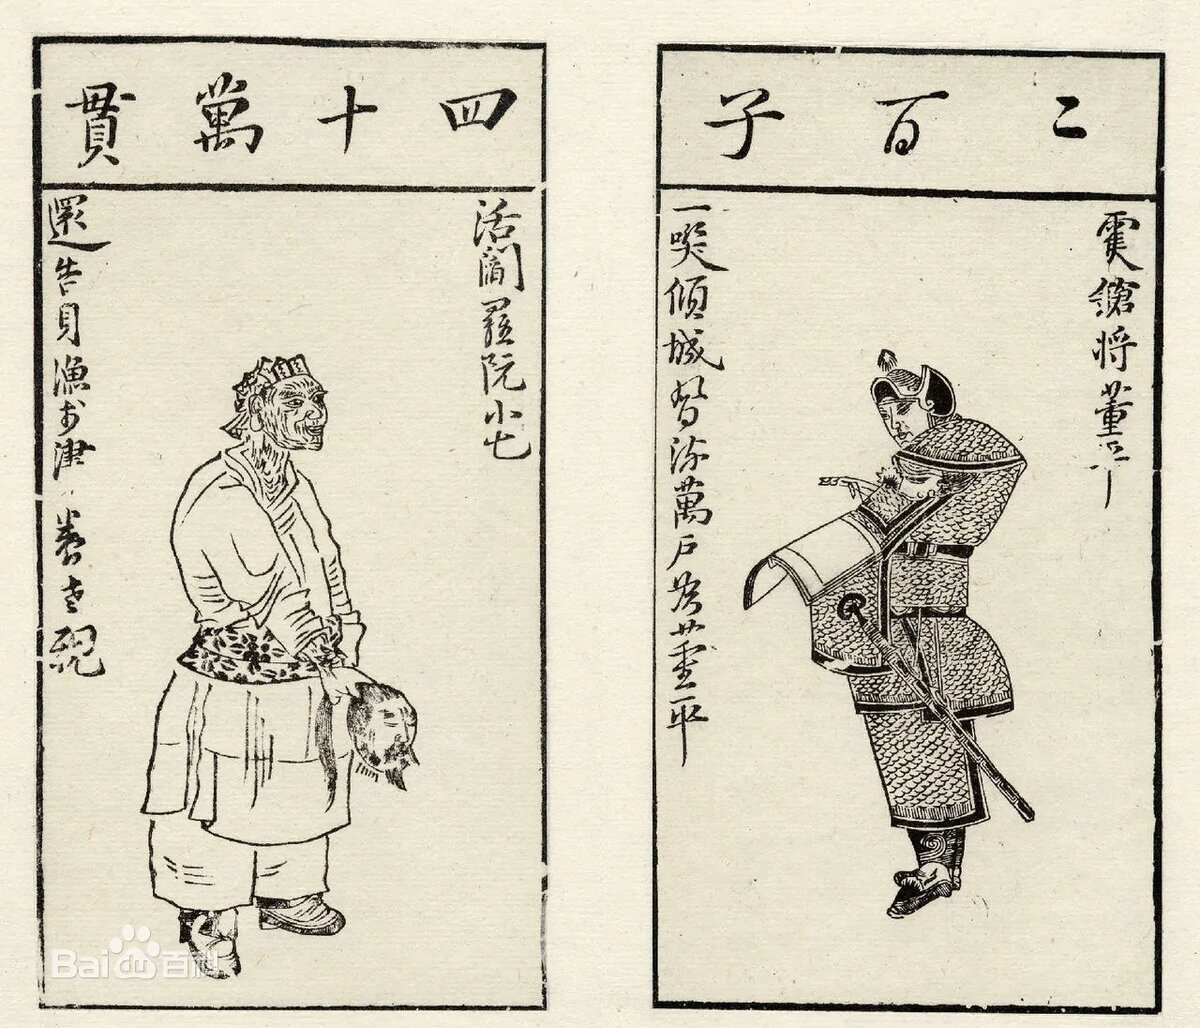 二百子
䨇鎗将董平
一咲傾城風流萬戶侯董平
四十萬貫
活閻羅阮小七
還告身漁於津養老親
Bai百科